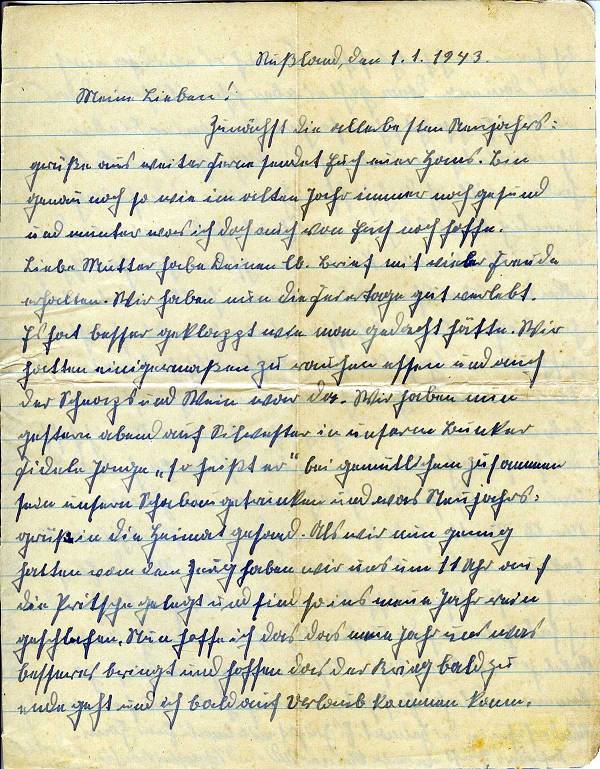 Rußland, den 1.1.1943.
Meine Lieben!
Zunächst die allerbesten Neujahrs=
grüße aus weiter Ferne sendet Euch euer Hans. Bin
genau noch so wie im alten Jahr immer noch gesund
und munter was ich doch auch von Euch noch hoffe.
Liebe Mutter habe Deinen lb. Brief mit vieler Freude
erhalten. Wir haben nun die Feiertage gut verlebt.
Es hat besser geklappt wie man gedacht hätte. Wir
hatten einigermaßen zu rauchen essen und auch
der Schnaps und Wein war da. Wir haben nun
gestern abend auf Silvester in unserm Bunker
fidele Jonge „so heißt er“ bei gemütlichem zusammen
sein unsern getrunken und was Neujahrs=
grüß in die Heimat gesand. Als wir nun genug
hatten von dem Zeug haben wir uns um 11 Uhr auf
die Pritsche gelegt und sind so ins neue Jahr rein
geschlafen. Nun hoffe ich das das neue Jahr uns was
besseres bringt und hoffen das der Krieg bald zu
ende geht und ich bald auf Verlaub kommen kann.